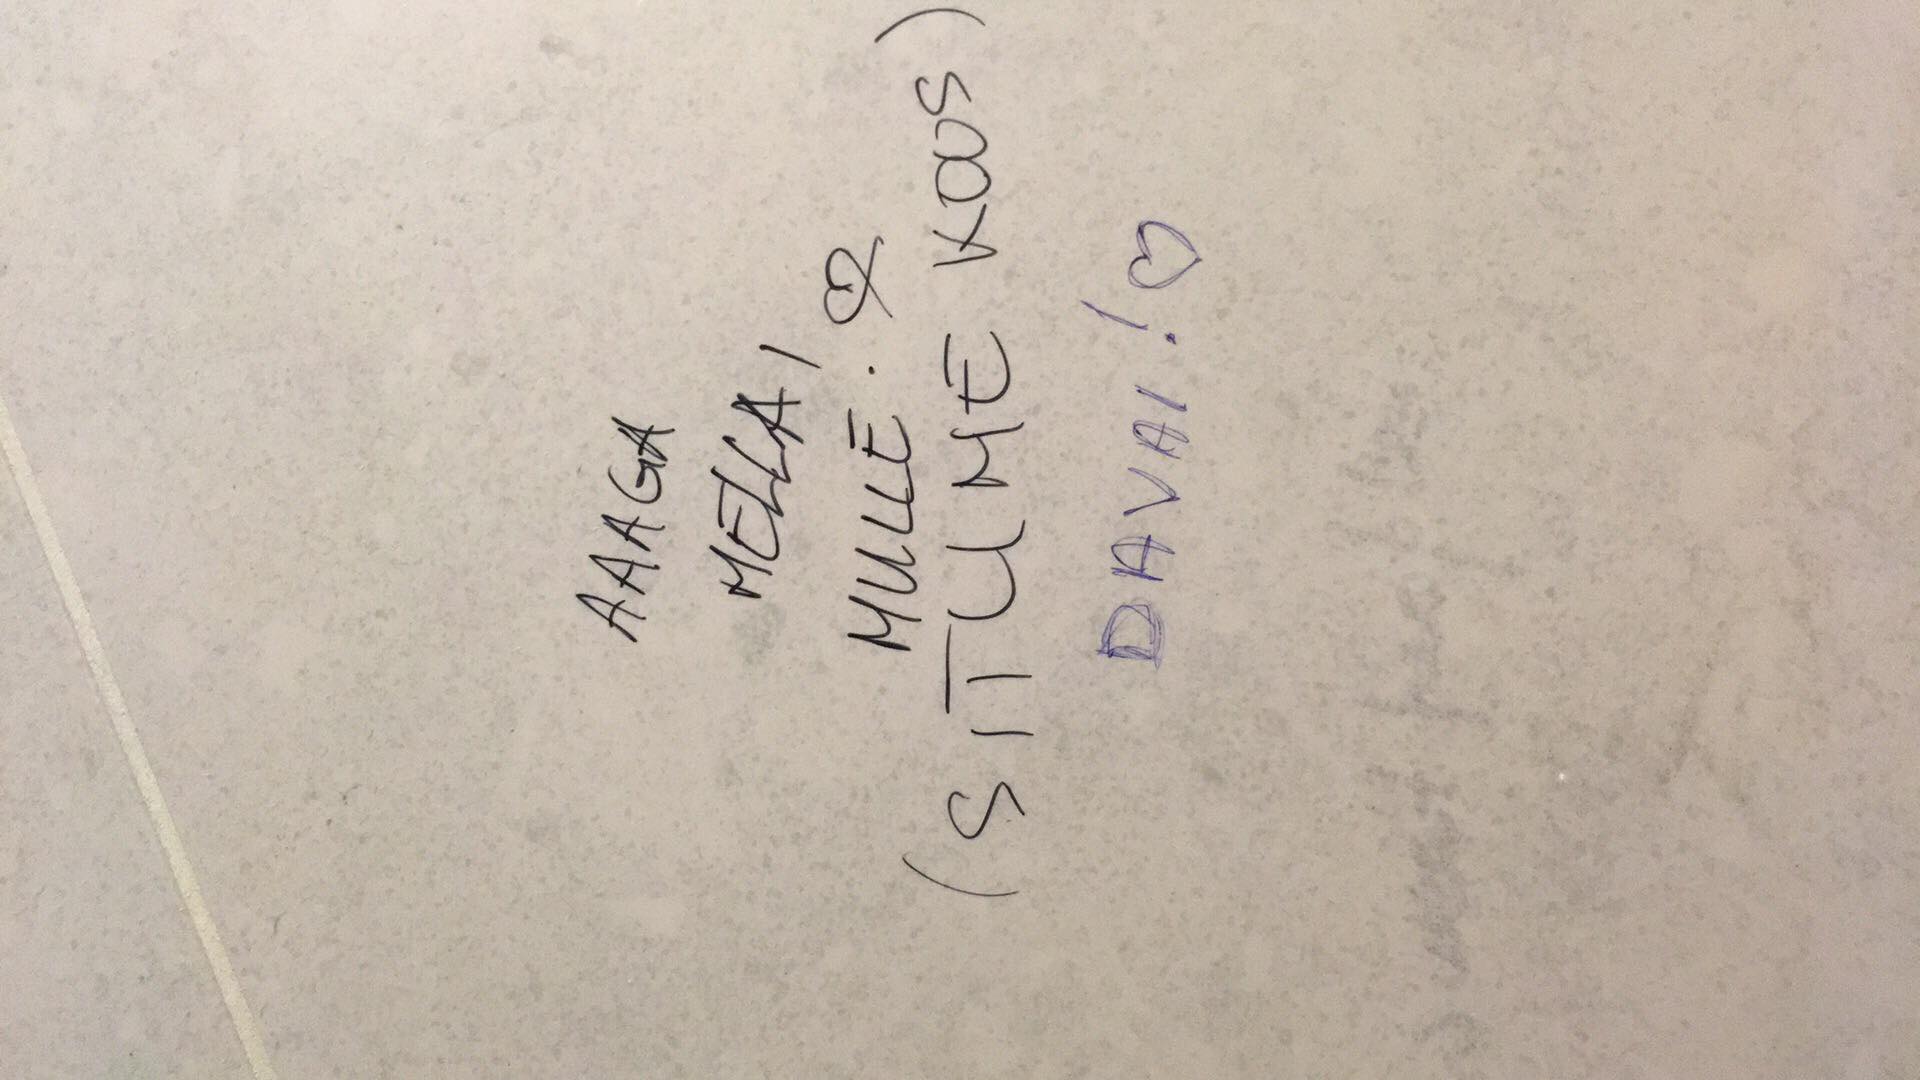 AAAGA
MEILLAI
MULLE. ♡
(SITUME KOOS)
DAVAI! ♡